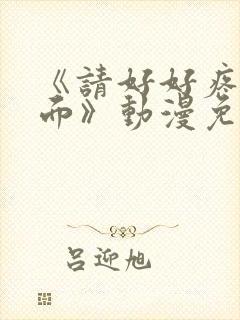 《請好好疼
而》動漫免
呂迎旭